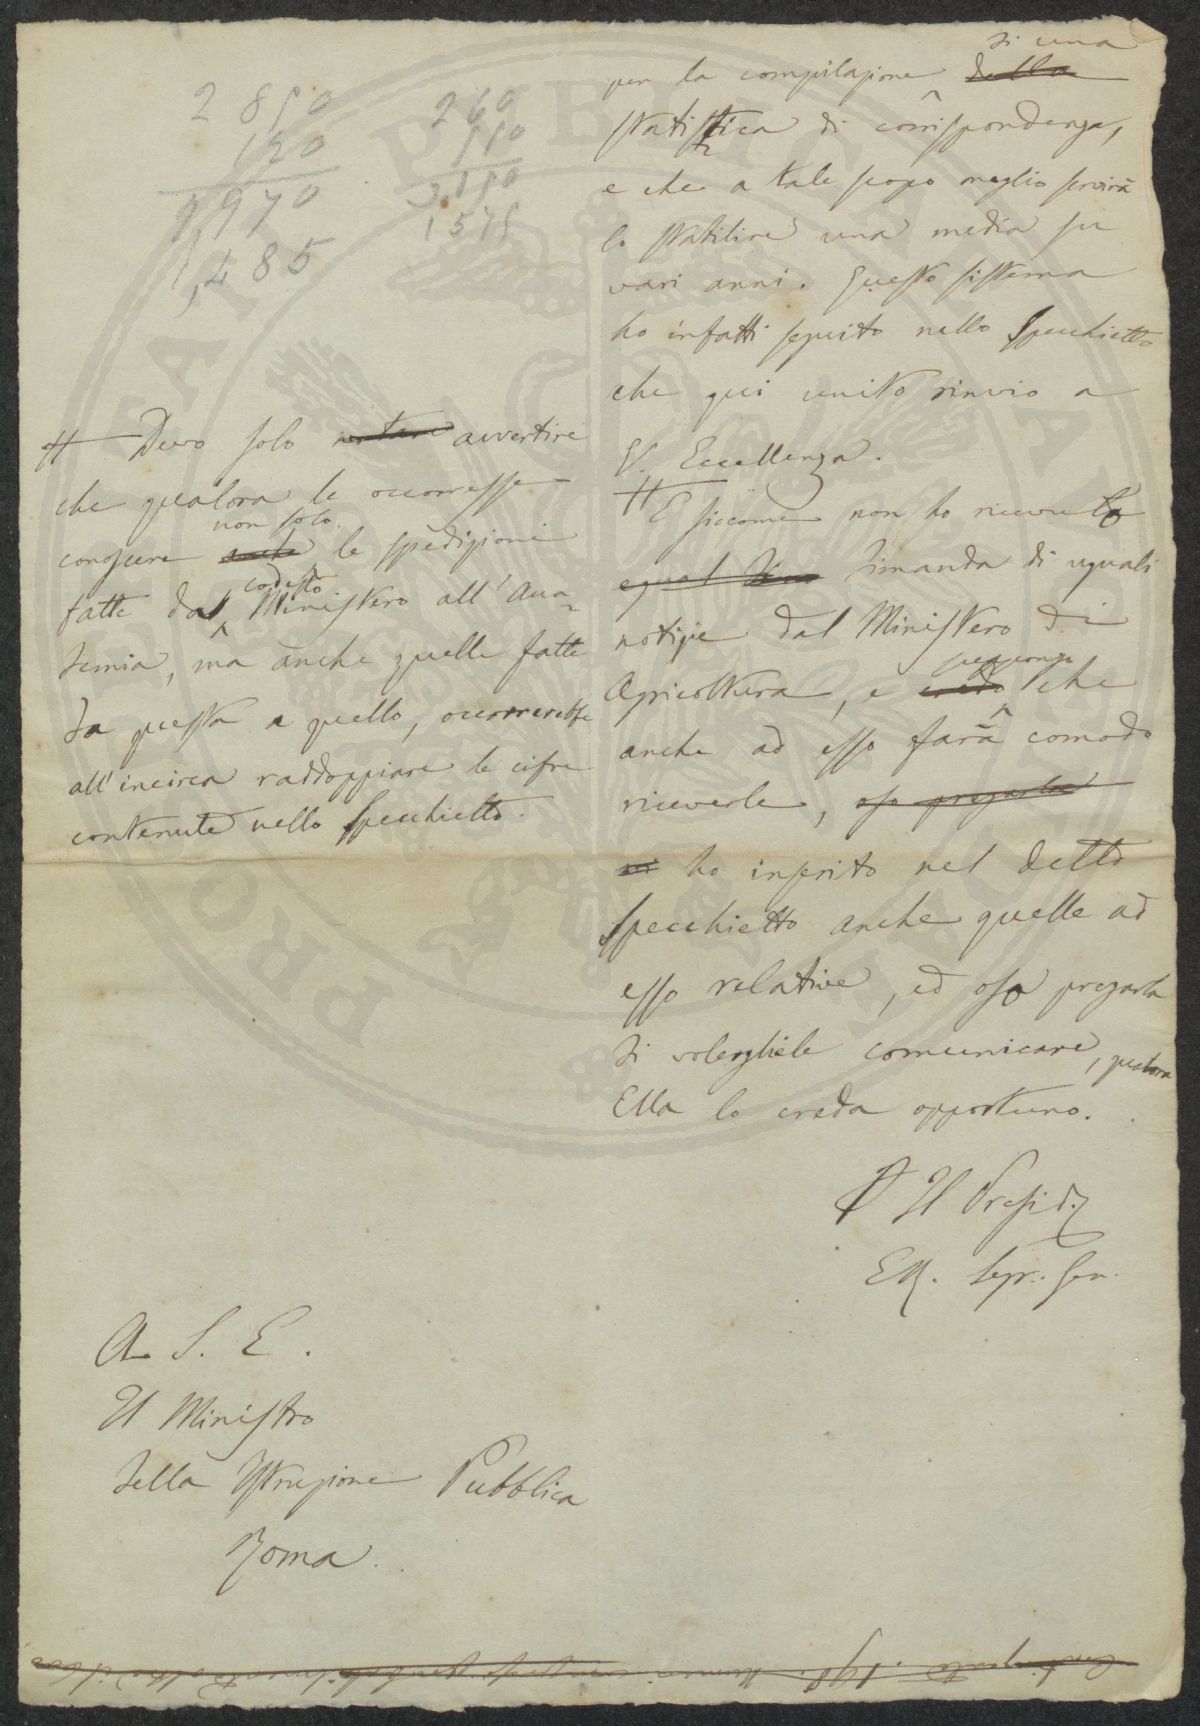 2850
120
2,970
1,485
260
3.150
1575
di una
per la compilazione della
statistica di corrispondenza,
e che a tale scopo meglio servirà
lo stabilire una media su
vari anni. Questo sistema
ho infatti seguito nello Specchietto
che qui unito rinvio a
V. Eccellenza.
# E siccome non ho ricevuto
egual dimanda di uguali
notizie dal Ministero di
Agricoltura, e credo che
anche ad esso farà comodo
riceverle, oso pregarla
ho inserito nel detto
Specchietto anche quelle ad
esso relative, ed oso pregarla
di volergliele comunicare, qualora
Ella lo creda opportuno.
Il Presid.
EM. Segr. Gen.
# Devo solo notare avvertire
che qualora le occorresse
non solo
conoscere anche le spedizioni
codesto
fatte dal Ministero all'Acca-
demia, ma anche quelle fatte
da questa a quello, occorrerebbe
all'incirca raddoppiare le cifre
contenute nello Specchietto.
A S. E.
Il Ministro
della Istruzione Pubblica
Roma